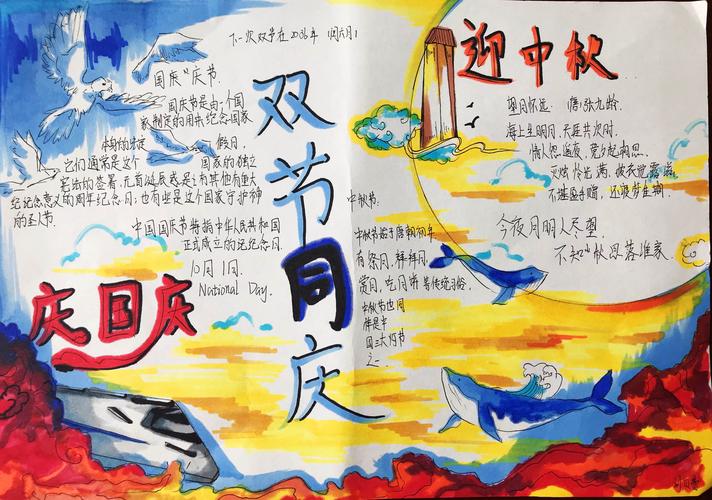 下一次双节在2036年
国庆"庆节.
国庆节是由一个国
家制定的用来纪念国家
本身的法定 假日.
它们通常是这个 国家的独立
宪法的签署,元首诞辰或是有其他有重大
纪念意义的周年纪念日,也有些是这个国家守护神
的圣人节.
中国国庆节特指中华人民共和国
正式成立的纪念日
10月1日.
National Day.
庆国庆
双节同庆
中秋节:
中秋节始于唐朝初年
有祭月、拜月
赏月、吃月饼等传统习俗
中秋节也同
国三大灯节
之一.
迎中秋
望月怀远 唐:张九龄.
海上生明月,天涯共次时.
情人怨遥夜,竟夕起相思.
灭烛怜光满,披衣觉露滋
不堪盈手赠,还寝梦佳期.
今夜月明人尽望
不知秋思落谁家.